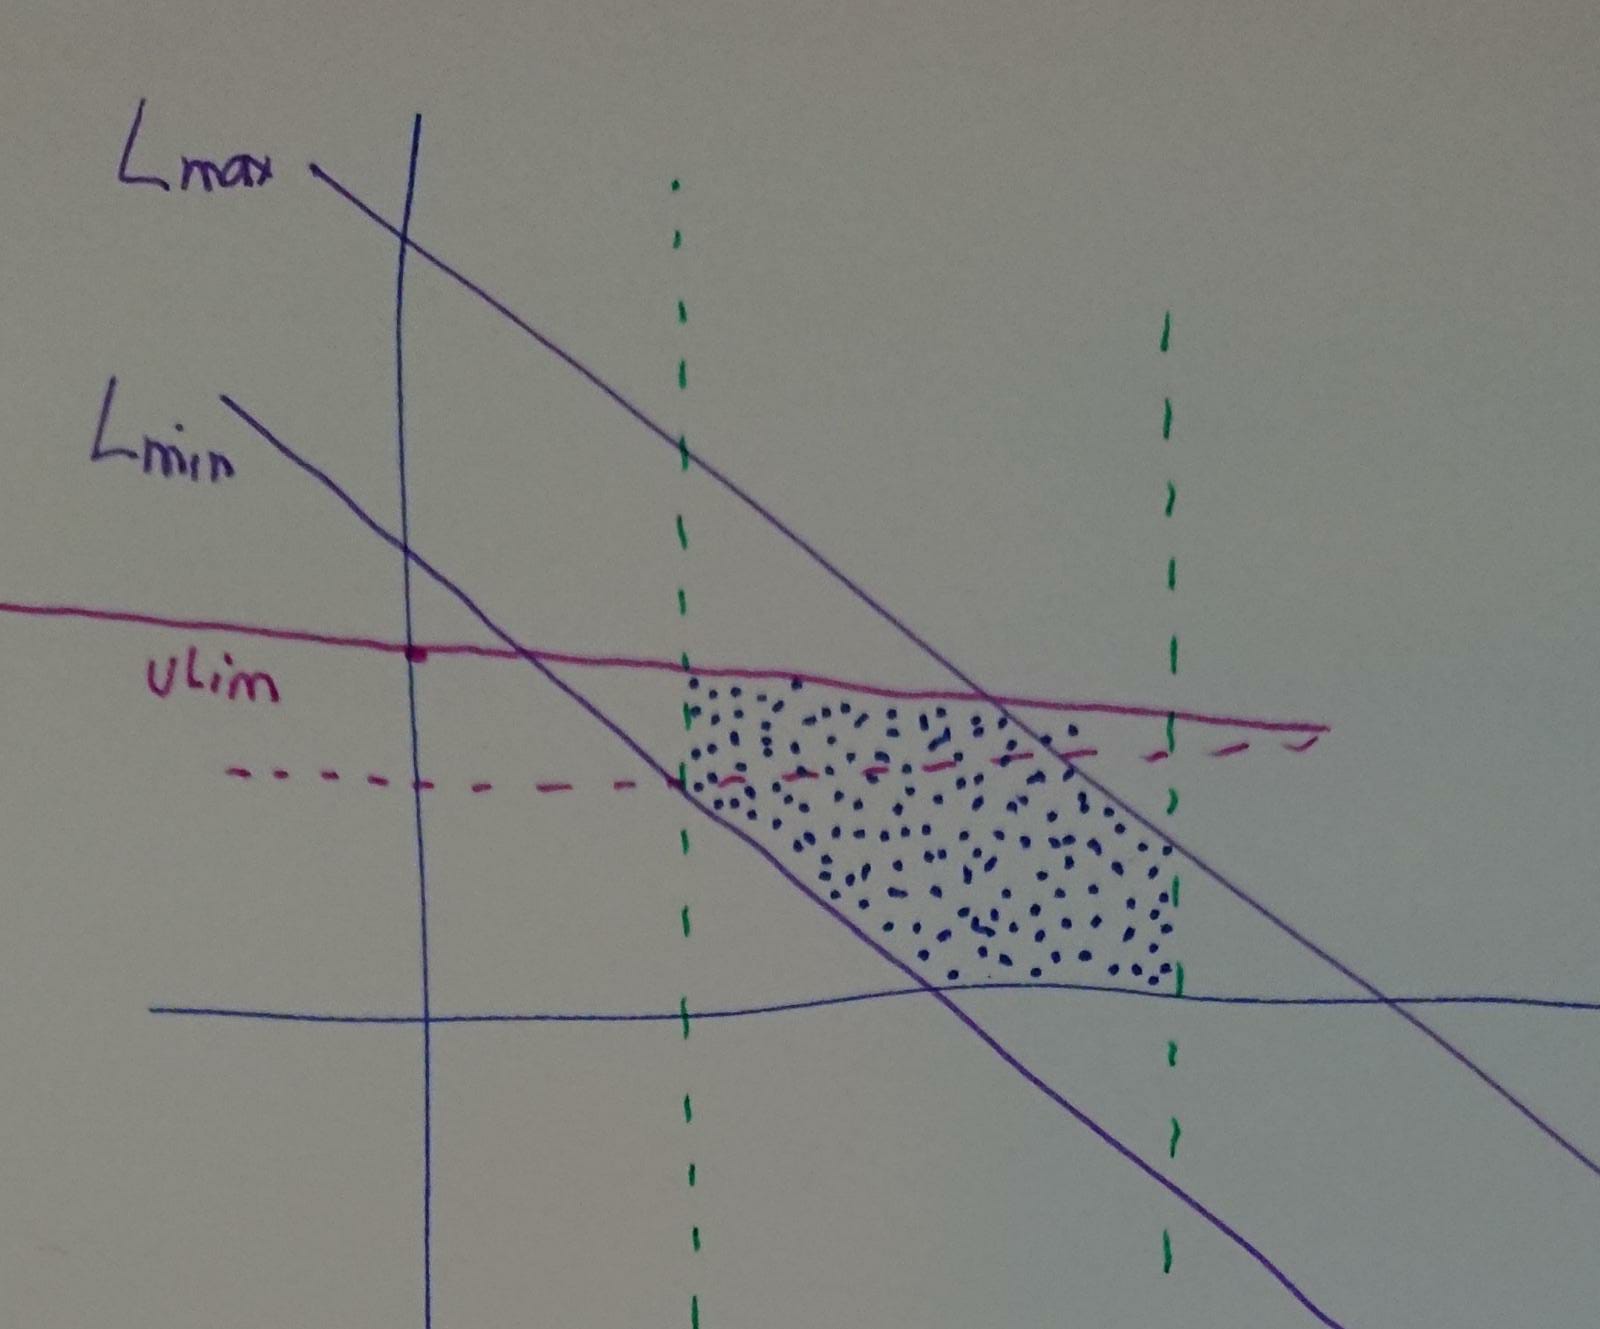 Lmax
Lmin
uLim